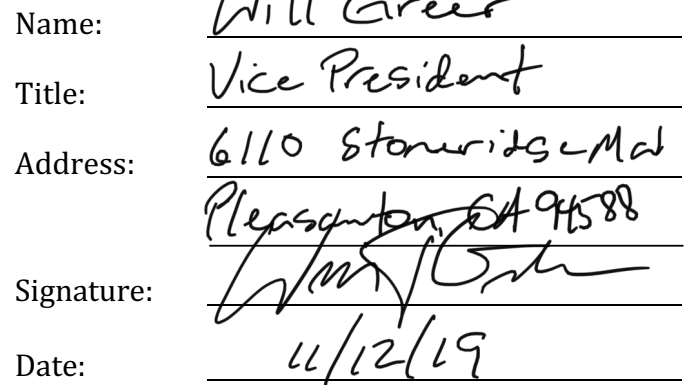 Name: Will Greer
Title: Vice President
Address: 6110 Stoneridge Mal
Pleasanton, CA 94588
Signature:
Date: 11/12/19